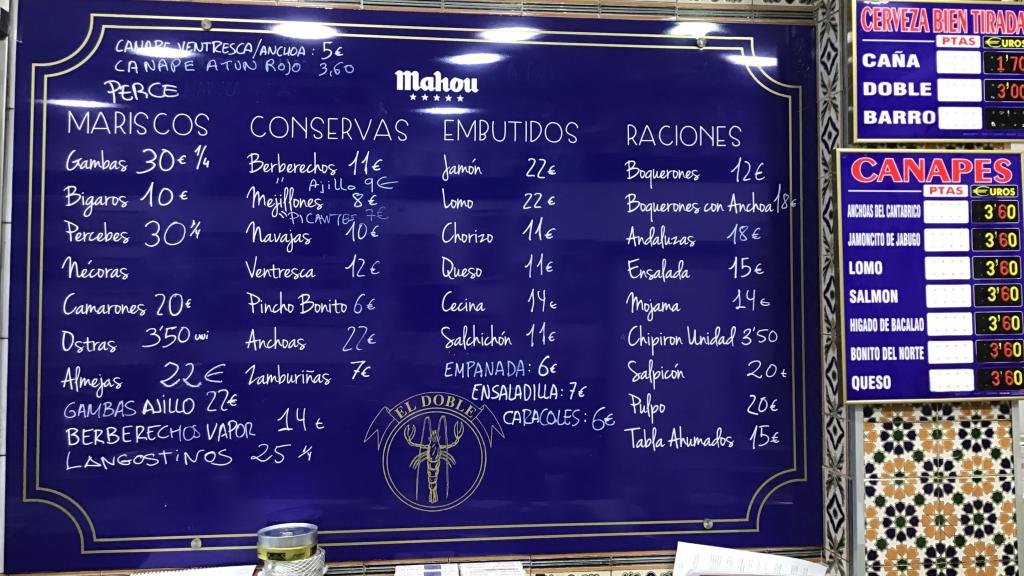 CANAPE VENTRESCA/ANCHOA: 5€
CANAPE ATUN ROJO 3,60
PERCE
Mahou
MARISCOS
Gambas 30€ 1/4
Bigaros 10€
Percebes 30 1/4
Nécoras
Camarones 20€
Ostras 3'50 uni
Almejas 22€
GAMBAS AJILLO 22€
BERBERECHOS VAPOR 14€
LANGOSTINOS 25 1/4
CONSERVAS
Berberechos 11€
" Ajillo 9€
Mejillones 8€
" PICANTES 7€
Navajas 10€
Ventresca 12€
Pincho Bonito 6€
Anchoas 22€
Zamburiñas 7€
EMBUTIDOS
Jamón 22€
Lomo 22€
Chorizo 11€
Queso 11€
Cecina 14€
Salchichón 11€
EMPANADA: 6€
ENSALADILLA: 7€
CARACOLES: 6€
EL DOBLE
RACIONES
Boquerones 12€
Boquerones con Anchoa 18€
Andaluzas 18€
Ensalada 15€
Mojama 14€
Chipiron Unidad 3'50
Salpicón 20€
Pulpo 20€
Tabla Ahumados 15€
CERVEZA BIEN TIRADA
PTAS €UROS
CAÑA 1'70
DOBLE 3'00
BARRO
CANAPES
PTAS €UROS
ANCHOAS DEL CANTABRICO 3'60
JAMONCITO DE JABUGO 3'60
LOMO 3'60
SALMON 3'60
HIGADO DE BACALAO 3'60
BONITO DEL NORTE 3'60
QUESO 3'60